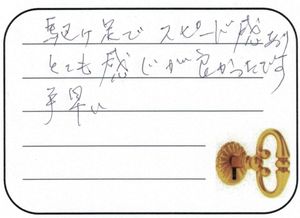 駆け足でスピード感あり
とても感じが良かったです
手早い